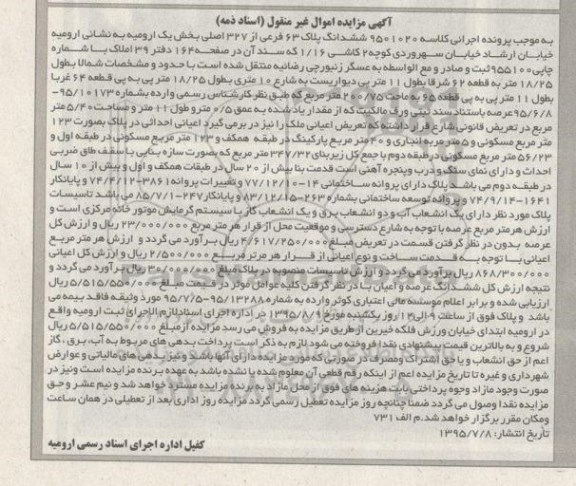 آگهی مزایده اموال غیر منقول (اسناد ذمه)
به موجب پرونده اجرائی کلاسه ۹۵۰۱۰۲۰ ششدانگ پلاک ۶۳ فرعی از ۳۲۷ اصلی بخش یک ارومیه به نشانی ارومیه
خیابان ارشاد خیابان سهروردی کوچه ۲ کاشی ۱/۱۶ که سند آن در صفحه ۱۶۴ دفتر ۳۹ املاک با شماره
چاپی ۹۵۵۱۰۰ ثبت و صادر و مع الواسطه به عسگر زنبورچی رضائیه منتقل شده است با حدود و مشخصات شمالا بطول
۱۸/۲۵ متر به قطعه ۶۲ شرقا بطول ۱۱ متر پی دیواریست به شارع ۱۰ متری بطول ۱۸/۲۵ متر پی به پی قطعه ۶۴ غربا
بطول ۱۱ متر پی به پی قطعه ۶۵ به مساحت ۲۰۰/۷۵ متر مربع که طبق نظر کارشناس رسمی وارده بشماره ۹۵/۱۰۱۷۳-
۹۵/۶/۸ عرصه باستناد سند ثبتی ورق مالکیت که از مقدار یاد شده به عمق ۰/۵ مترو طول ۱۱ متر و مساحت ۵/۴۰ متر
مربع در تعریض قانونی شارع قرار داشته که تعریض اعیانی ملک را نیز در بر می گیرد اعیانی احداثی در پلاک بصورت ۱۲۳
متر مربع مسکونی و ۵ متر مربع انباری و ۴۰ متر مربع پارکینگ در طبقه همکف و ۱۲۳ متر مربع مسکونی در طبقه اول و
۵۶/۲۳ متر مربع مسکونی در طبقه دوم با جمع کل زیربنای ۳۴۷/۳۲ متر مربع که بصورت سازه بنایی با سقف طاق ضربی
احداث و دارای نمای سنگ و درب و پنجره آهنی است قدمت بنا بیش از ۲۰ سال در طبقات همکف و اول و بیش از ۱۰ سال
در طبقه دوم می باشد پلاک دارای پروانه ساختمانی ۱۴-۷۷/۱۲/۱۰ و تغییرات پروانه ۳۸۶۱-۷۴/۴/۱۲ و پایانکار
۱۶۴۱-۷۴/۹/۱۴ و پروانه توسعه ساختمانی بشماره ۲۶۳-۸۳/۱۲/۱۵ و پایانکار ۲۴۷-۸۵/۷/۱ می باشد تاسیسات
پلاک مورد نظر دارای یک انشعاب آب و دو انشعاب برق و یک انشعاب گاز با سیستم گرمایش موتور خانه مرکزی است و
ارزش هر متر مربع عرصه با توجه به شارع دسترسی و موقعیت محل از قرار هر متر مربع ۲۳/۰۰۰/۰۰۰ ریال و ارزش کل
عرصه بدون در نظر گرفتن قسمت در تعریض مبلغ ۴/۶۱۷/۲۵۰/۰۰۰ ریال برآورد می گردد و ارزش هر متر مربع
اعیانی با توجه به قدمت ساخت و نوع اعیانی از قرار هر متر مربع ۲/۵۰۰/۰۰۰ ریال و ارزش کل اعیانی
۸۶۸/۳۰۰/۰۰۰ ریال برآورد می گردد و ارزش تاسیسات منصوبه در پلاک مبلغ ۳۰/۰۰۰/۰۰۰ ریال برآورد می گردد و
نتیجه ارزش کل ششدانگ عرصه و اعیان با در نظر گرفتن کلیه عوامل موثر در قیمت مبلغ ۵/۵۱۵/۵۵۰/۰۰۰ ریال
ارزیابی شده و برابر اعلام موسسه مالی اعتباری کوثر وارده به شماره ۹۵/۱۳۲۸۸-۹۵/۷/۵ مورد وثیقه فاقد بیمه می
باشد و پلاک فوق از ساعت ۹ الی ۱۲ روز یکشنبه مورخ ۱۳۹۵/۸/۹ در اداره اجرای اسناد لازم الاجرای ثبت ارومیه واقع
در ارومیه ابتدای خیابان ورزش فلکه خیرین از طریق مزایده به فروش می رسد مزایده از مبلغ ۵/۵۱۵/۵۵۰/۰۰۰ ریال
شروع و به بالاترین قیمت پیشنهادی نقدا فروخته می شود لازم به ذکر است پرداخت بدهی های مربوط به آب، برق، گاز
اعم از حق انشعاب و یا حق اشتراک و مصرف در صورتی که مورد مزایده دارای آنها باشد و نیز بدهی های مالیاتی و عوارض
شهرداری و غیره تا تاریخ مزایده اعم از اینکه رقم قطعی آن معلوم شده یا نشده باشد به عهده برنده مزایده است و نیز در
صورت وجود مازاد وجوه پرداختی بابت هزینه های فوق از محل مازاد به برنده مزایده مسترد خواهد شد و نیم عشر و حق
مزایده نقدا وصول می گردد ضمنا چنانچه روز مزایده تعطیل رسمی گردد مزایده روز اداری بعد از تعطیلی در همان ساعت
ومکان مقرر برگزار خواهد شد. م الف ۷۳۱
تاریخ انتشار: ۱۳۹۵/۷/۸
کفیل اداره اجرای اسناد رسمی ارومیه